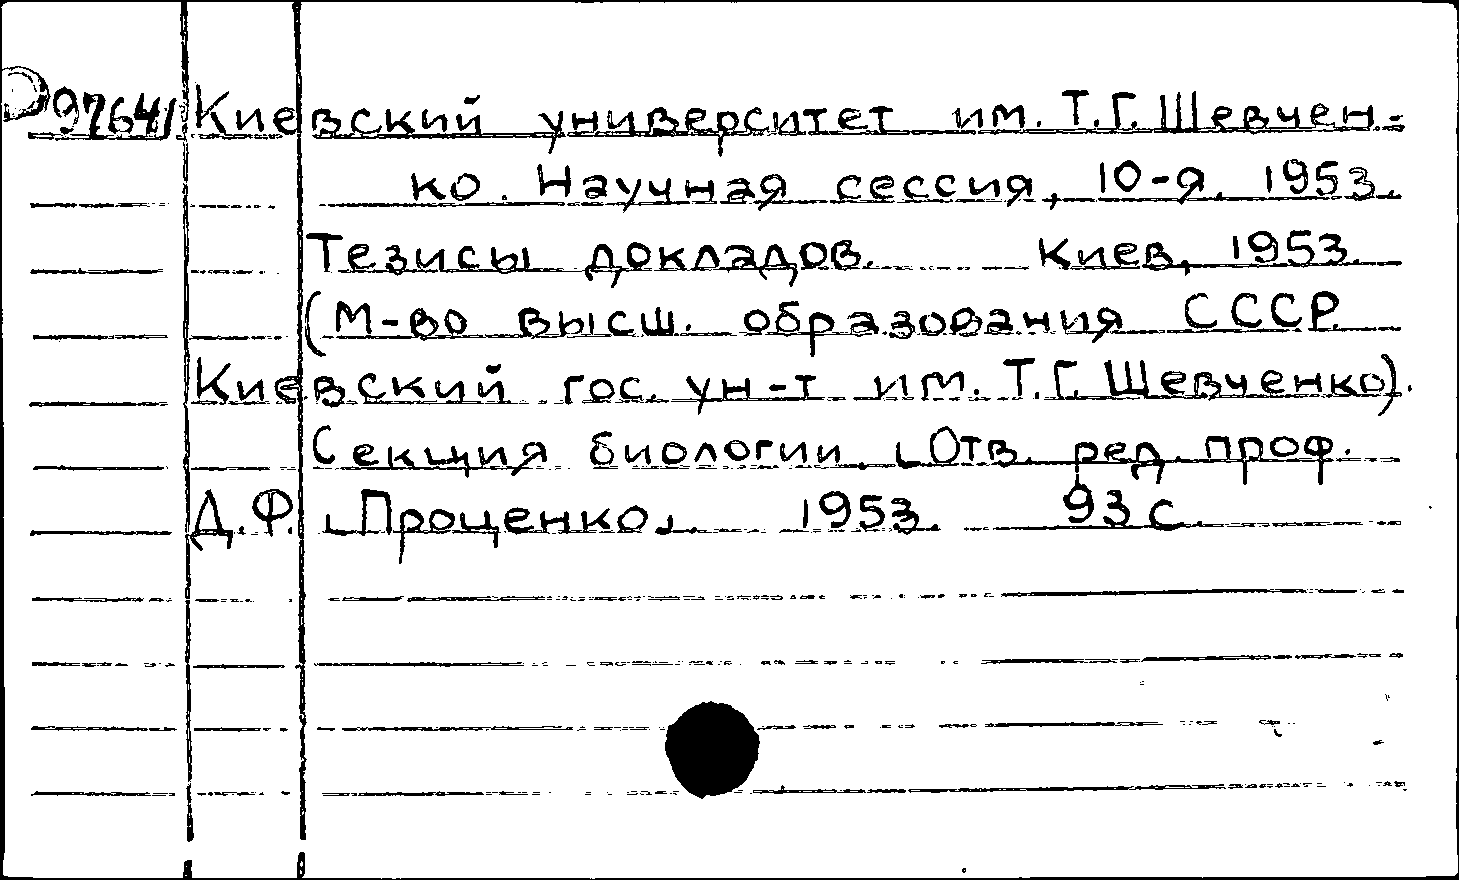 97641 Киевский университет им. Т.Г. Шевчен-
ко. Научная сессия, 10-я. 1953.
Тезисы докладов. Киев, 1953.
(М-во высш. образования СССР.
Киевский гос. ун-т им. Т.Г. Шевченко).
Секция биологии. [Отв. ред. проф.
Д.Ф. [Проценко]. 1953. 93 с.